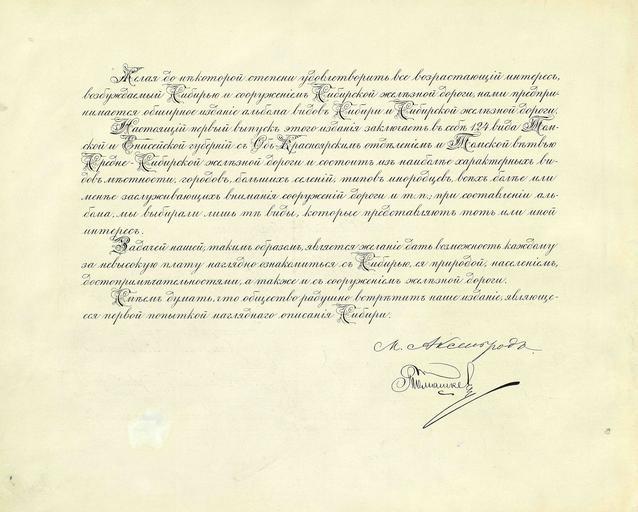 Желая до нѣкоторой степени удовлетворить все возрастающій интересъ,
возбуждаемый Сибирью и сооруженіемъ Сибирской желѣзной дороги, нами предпри-
нимается обширное изданіе альбома видовъ Сибири и Сибирской желѣзной дороги.
Настоящій первый выпускъ этого изданія заключаетъ въ себѣ 124 вида Том-
ской и Енисейской губерній съ Обь-Красноярскимъ отдѣленіемъ и Томской вѣтвью
Средне-Сибирской желѣзной дороги и состоитъ изъ наиболѣе характерныхъ ви-
довъ мѣстности, городовъ, большихъ селеній, типовъ инородцевъ, всѣхъ болѣе или
менѣе заслуживающихъ вниманія сооруженій дороги и т.п.; при составленіи аль-
бома, мы выбирали лишь тѣ виды, которые представляютъ тотъ или иной
интересъ.
Задачей нашей, такимъ образомъ, является желаніе дать возможность каждому
за невысокую плату наглядно ознакомиться съ Сибирью, ея природой, населеніемъ,
достопримѣчательностями, а также и съ сооруженіемъ желѣзной дороги.
Смѣемъ думать, что общество радушно встрѣтитъ наше изданіе, являюще-
еся первой попыткой нагляднаго описанія Сибири.
М. Аксельродъ.
Томашкевичъ